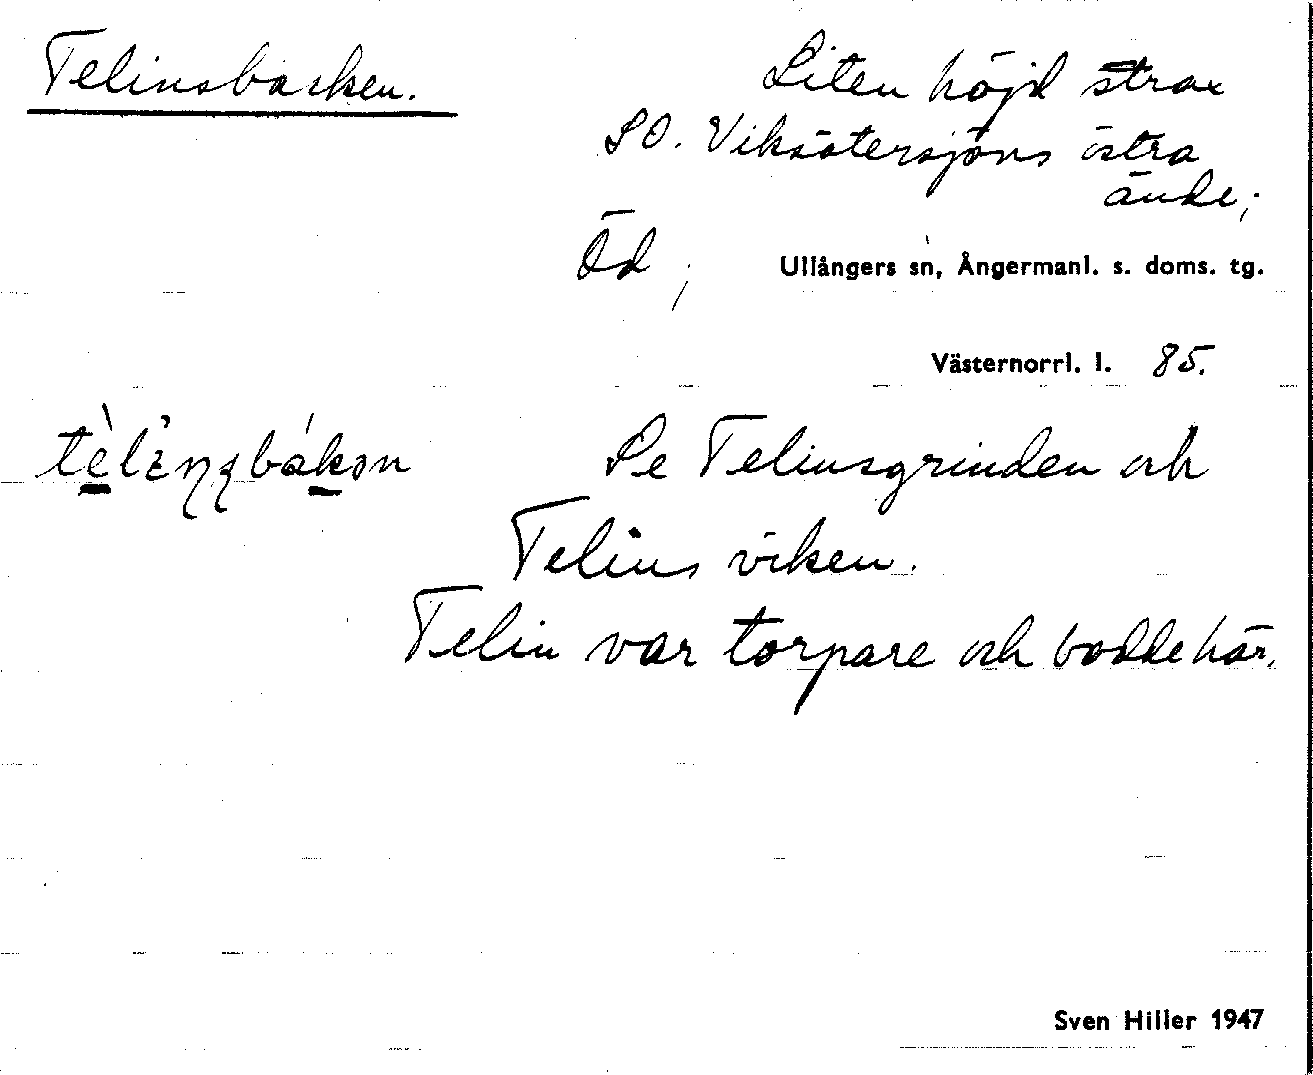 Telinsbacken.
Liten höjd strax
SO. Viksätersjöns östra
ände;
Öd ;
Ullångers sn, Ångermanl. s. doms. tg.
Västernorrl. l. 85.
Se Telinsgrinden och
Telins viken.
Telin var torpare och bodde här.
Sven Hiller 1947